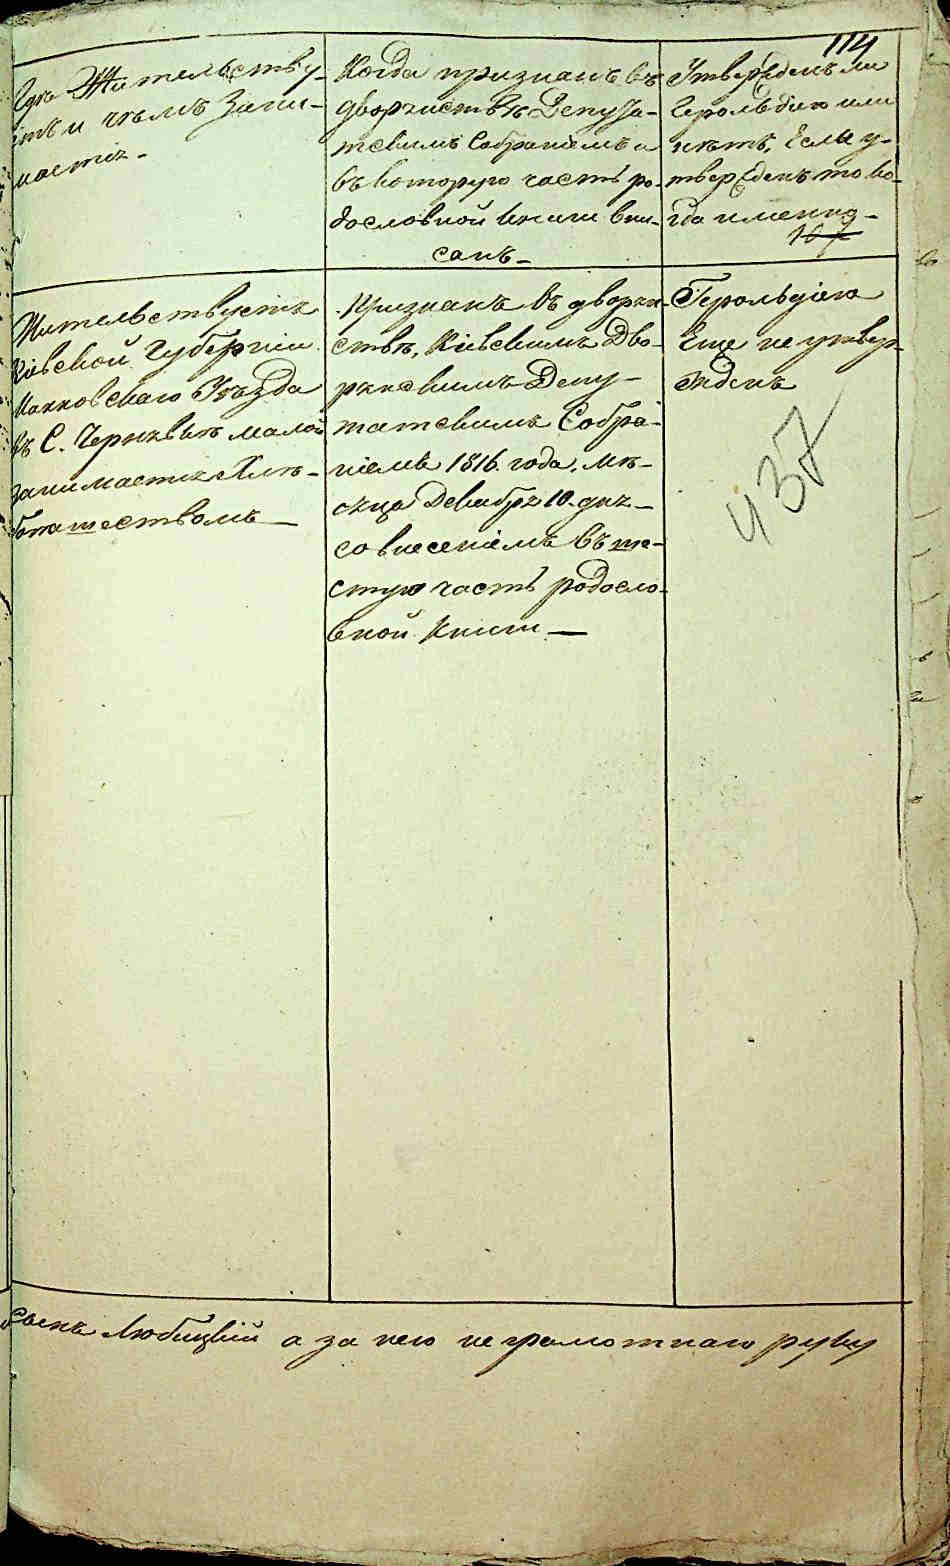 114
Гдѣ Жительству-
етъ и чѣмъ Зани-
мается-
Когда признанъ въ
дворянствѣ Депута-
тскимъ Собраніемъ и
въ которую часть ро-
дословной Книги впи-
санъ-
Утвержденъ ли
Герольдіею или
нѣтъ, Если у-
твержденъ то ко-
гда именно-
Жительствуетъ
Кіевской Губерніи
Махновскаго Уѣзда
въ С. Чернявкѣ малой
занимается Хлѣ-
бопашествомъ—
Признанъ въ дворян-
ствѣ, Кіевскимъ Дво-
рянскимъ Депу-
татскимъ Собра-
ніемъ 1816. года, мѣ-
сяца Декабря 10. дня-
со внесеніемъ въ ше-
стую часть родосло-
вной Книги—
Герольдіею
Еще не утвер-
жденъ
437
Любицкій а за него неграмотнаго руку